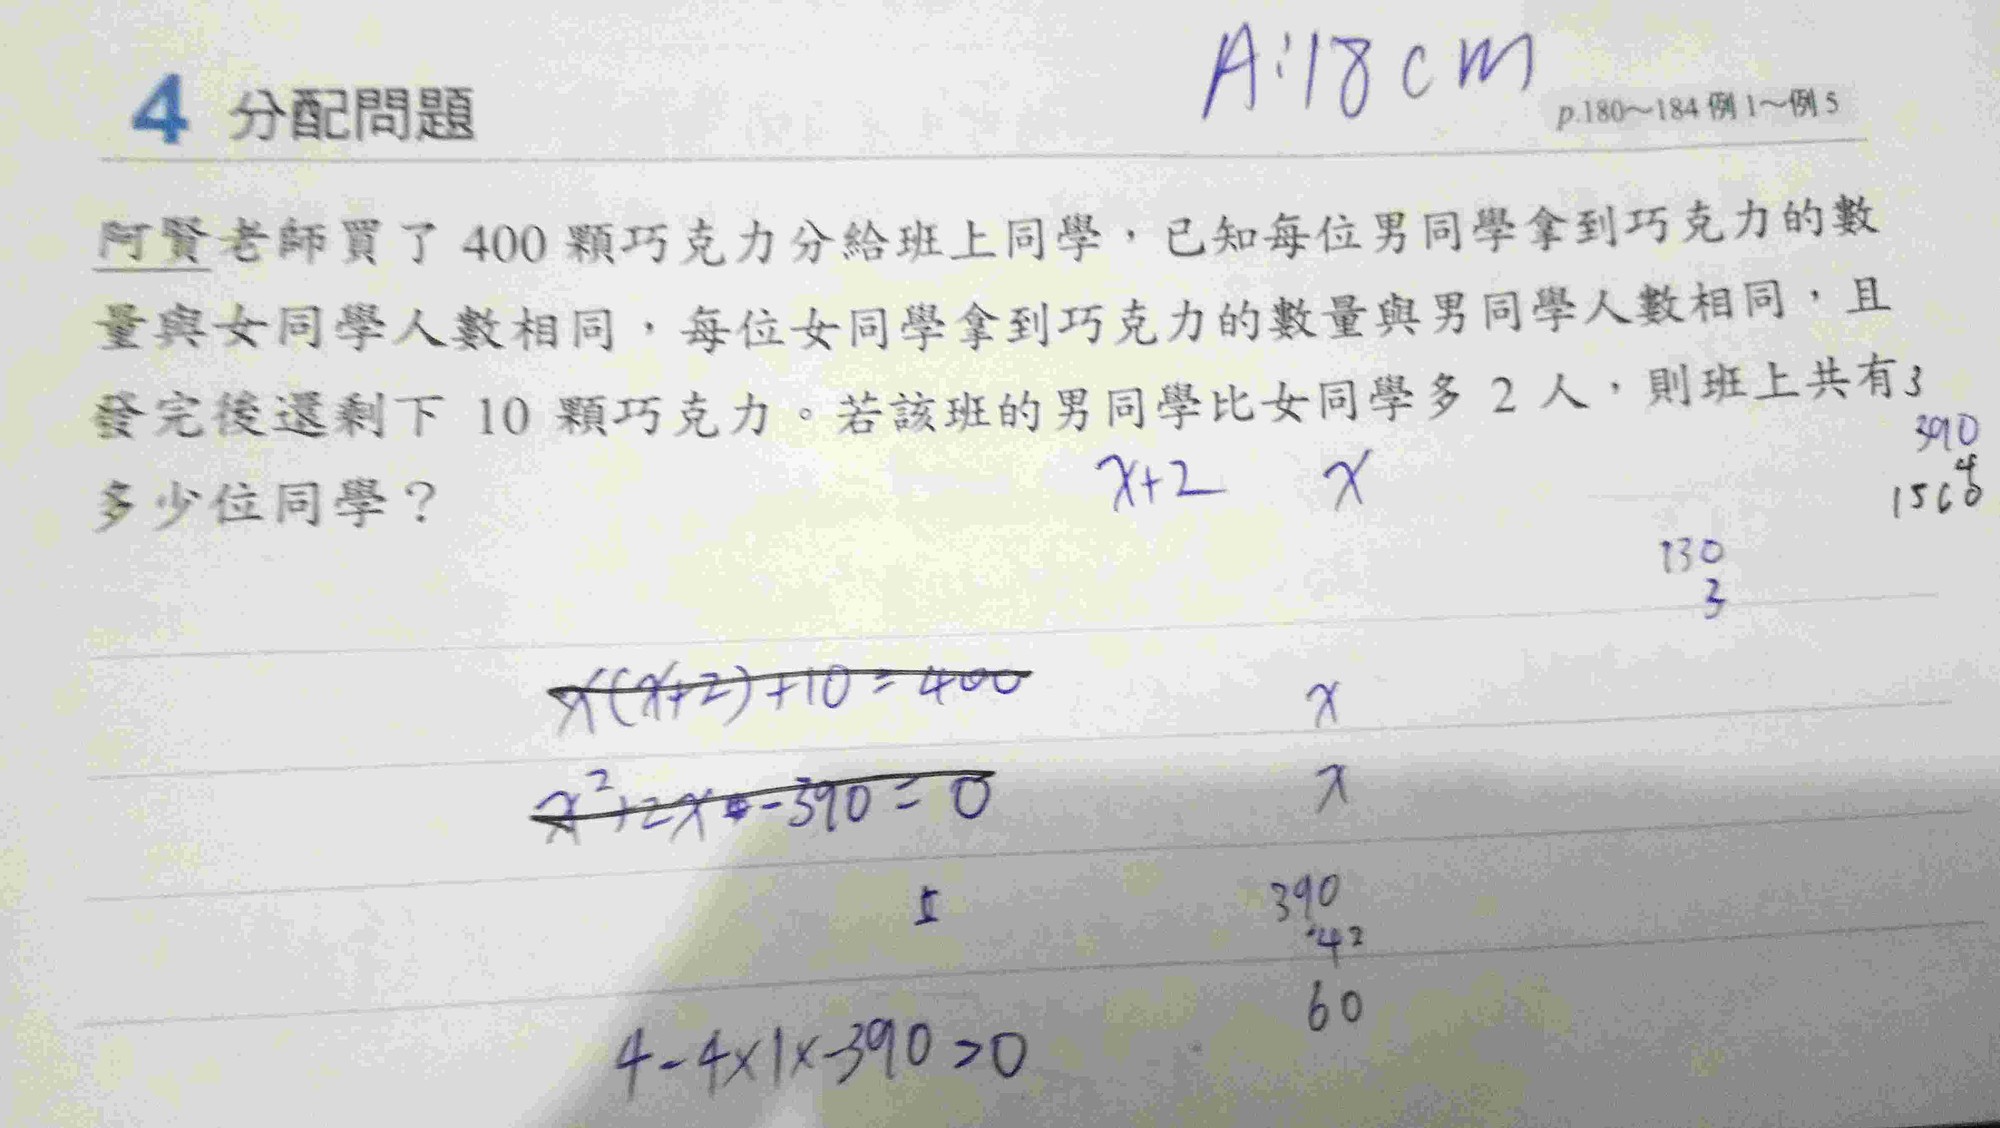 A:18cm
4 分配問題
p.180～184 例1～例5
阿賢老師買了 400 顆巧克力分給班上同學，已知每位男同學拿到巧克力的數
量與女同學人數相同，每位女同學拿到巧克力的數量與男同學人數相同，且
發完後還剩下 10 顆巧克力。若該班的男同學比女同學多 2 人，則班上共有
3
390
4
1560
多少位同學？
x+2 x
130
3
x(x+2)+10=400
x
x²+2x-390=0
x
390
42
60
4-4x1x-390>0